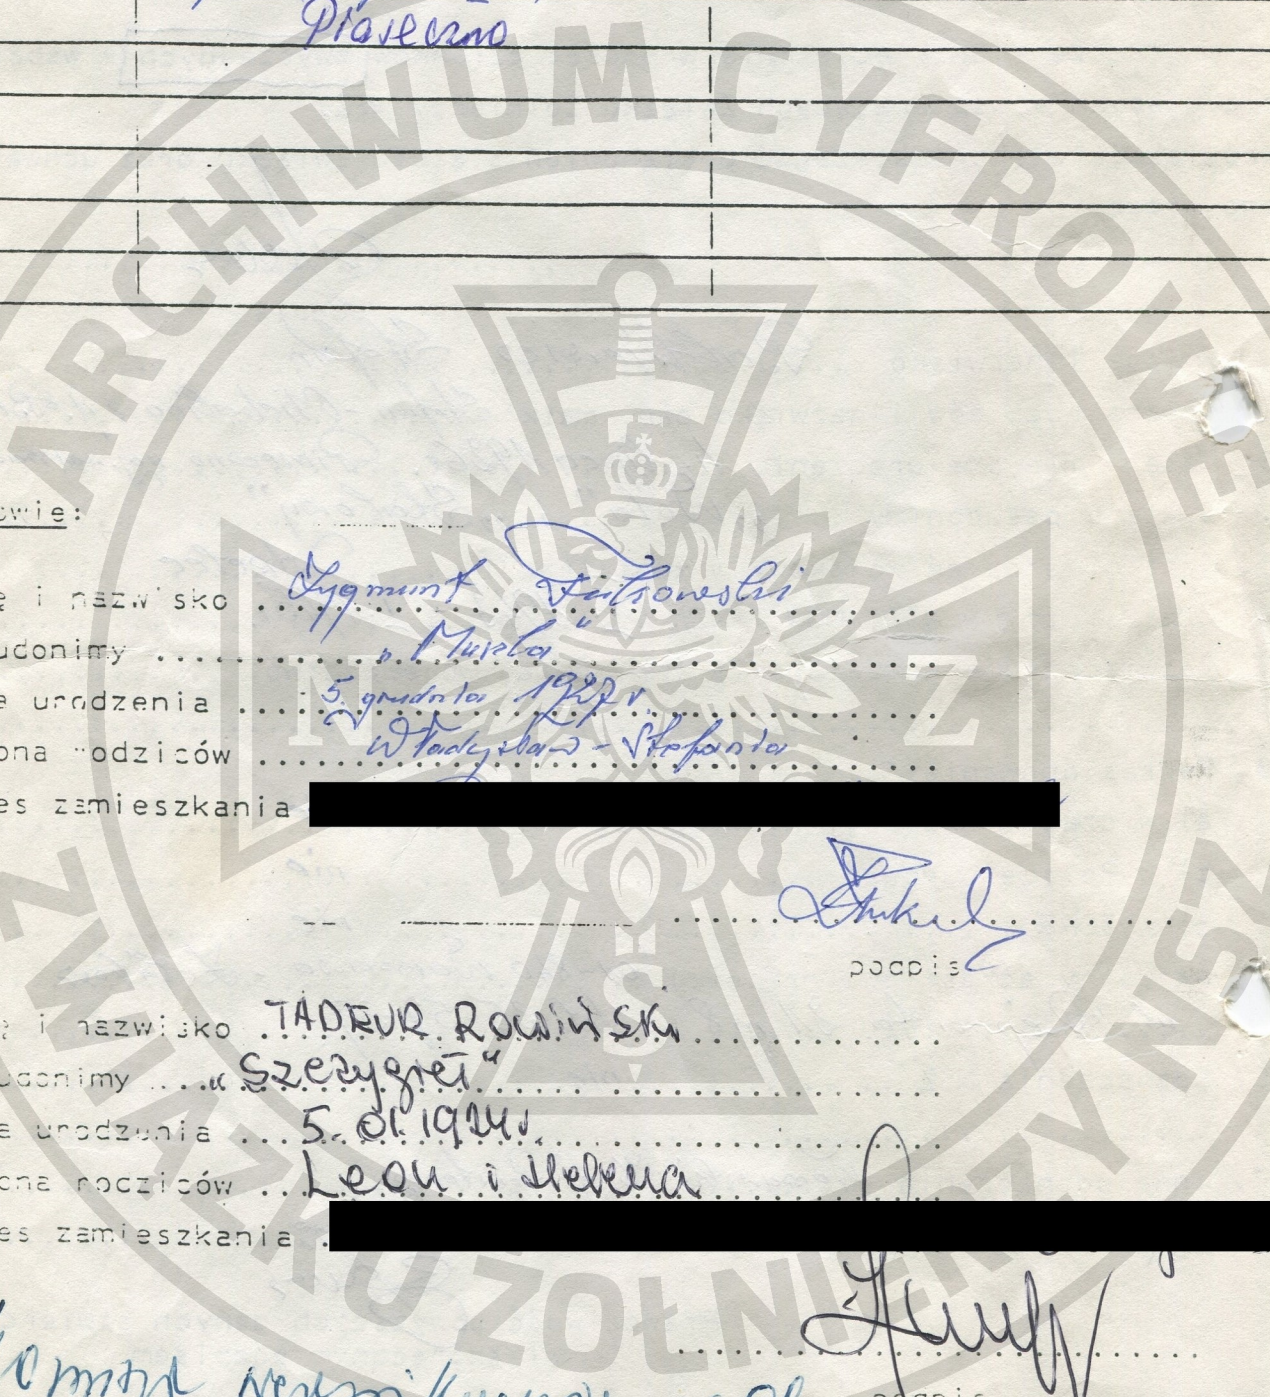 Piaseczno
ARCHIWUM CYFROWE
ZWIĄZKU ŻOŁNIERZY NSZ
N Z
S
owie:
ę i nazwisko Zygmunt
udonimy „Muszla"
a urodzenia 5 grudnia 1927 r.
ona rodziców Władysław - Stefania
es zamieszkania
podpis
i nazwisko TADEUR ROWIŃSKI
udonimy "Szczygieł"
a urodzenia 5.01.1924r.
ona rodziców Leon i Helena
es zamieszkania
podpis